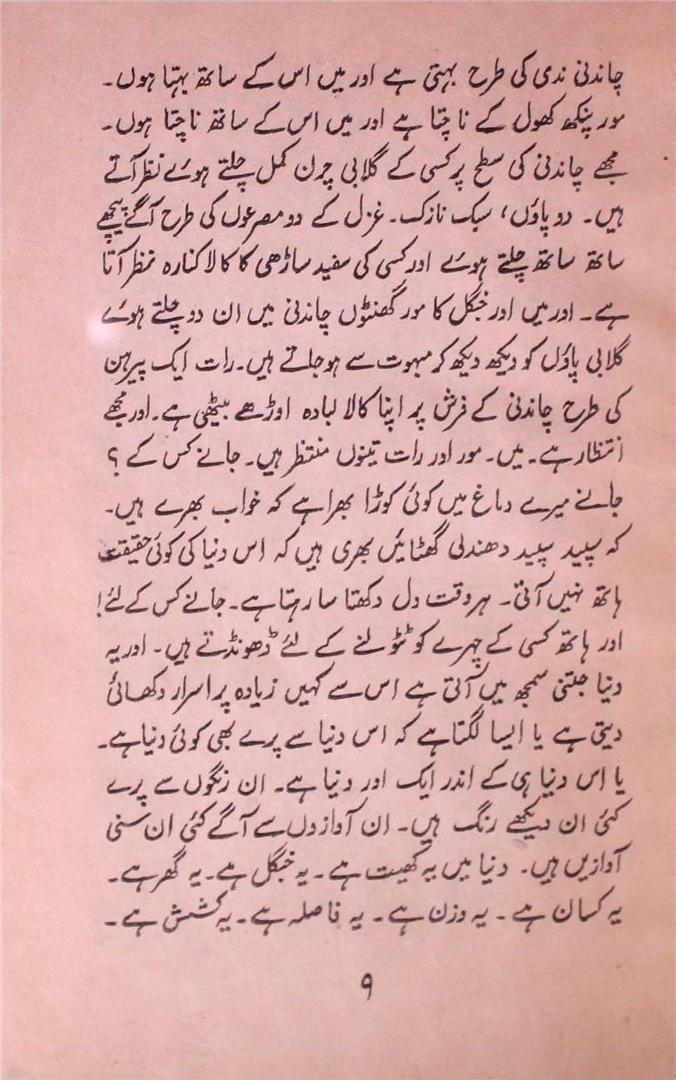 چاندنی ندی کی طرح بہتی ہے اور میں اس کے ساتھ بہتا ہوں۔
مور پنکھ کھول کے ناچتا ہے اور میں اس کے ساتھ ناچتا ہوں۔
مجھے چاندنی کی سطح پر کسی کے گلابی چرن کمل چلتے ہوئے نظر آتے
ہیں۔ دو پاؤں، سبک نازک۔ غزل کے دو مصرعوں کی طرح آگے پیچھے
ساتھ ساتھ چلتے ہوئے اور کسی کی سفید ساڑھی کا کالا کنارہ نظر آتا
ہے۔ اور میں اور جنگل کا مور گھنٹوں چاندنی میں ان دو چلتے ہوئے
گلابی پاؤں کو دیکھ دیکھ کر مبہوت سے ہو جاتے ہیں۔ رات ایک پیرہن
کی طرح چاندنی کے فرش پر اپنا کالا لبادہ اوڑھے بیٹھی ہے۔ اور مجھے
انتظار ہے۔ میں۔ مور اور رات تینوں منتظر ہیں۔ جانے کس کے ؟
جانے میرے دماغ میں کوئی کوڑا بھرا ہے کہ خواب بھرے ہیں۔
کہ سپید سپید دھندلی گھٹائیں بھری ہیں کہ اس دنیا کی کوئی حقیقت
ہاتھ نہیں آتی۔ ہر وقت دل دکھتا سا رہتا ہے۔ جانے کس کے لئے!
اور ہاتھ کسی کے چہرے کو ٹٹولنے کے لئے ڈھونڈتے ہیں۔ اور یہ
دنیا جتنی سمجھ میں آتی ہے اس سے کہیں زیادہ پراسرار دکھائی
دیتی ہے یا ایسا لگتا ہے کہ اس دنیا سے پرے بھی کوئی دنیا ہے۔
یا اس دنیا ہی کے اندر ایک اور دنیا ہے۔ ان رنگوں سے پرے
کئی ان دیکھے رنگ ہیں۔ ان آوازوں سے آگے کئی ان سنی
آوازیں ہیں۔ دنیا میں یہ کھیت ہے۔ یہ جنگل ہے۔ یہ گھر ہے۔
یہ کسان ہے۔ یہ وزن ہے۔ یہ فاصلہ ہے۔ یہ کشش ہے۔
۹